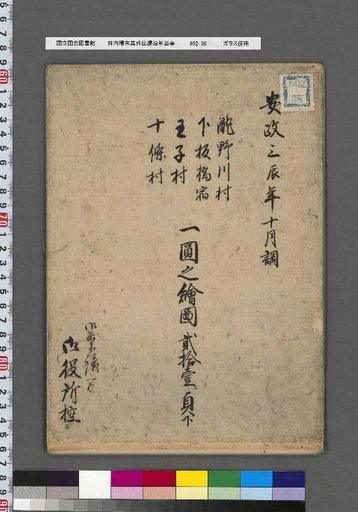 国立国会図書館 府内場末其外往還沿革図書 802-38 ガラス使用
802
38
安政三辰年十月調
瀧野川村
下板橋宿
王子村
十條村
一圓之繪圖貳拾壹
御役所控